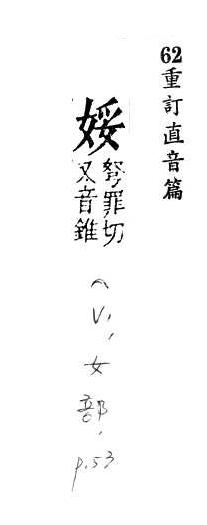 62重訂直音篇
娞
弩罪切
又音錐
(V, 女部, p.53